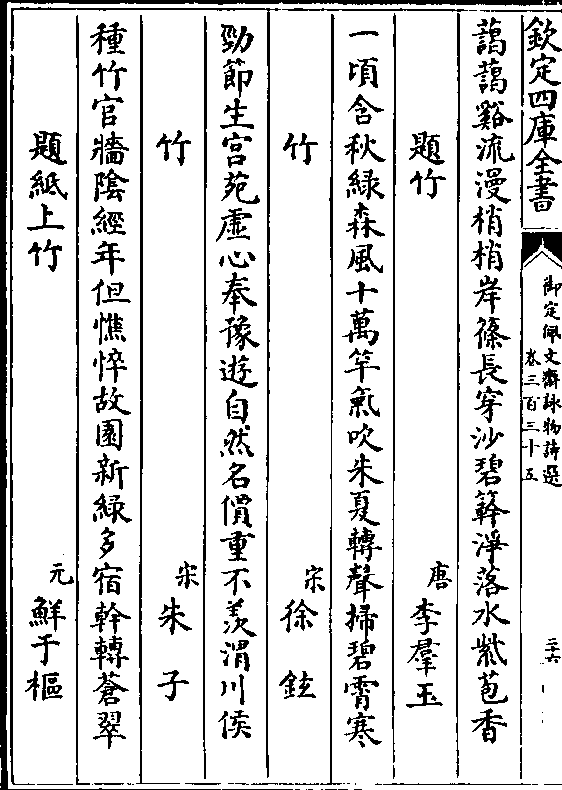 欽定四庫全書
御定佩文齋詠物詩選
卷三百三十五
三十六
藹藹谿流漫梢梢岸篠長穿沙碧簳淨落水紫苞香
題竹
唐 李羣玉
一頃含秋綠森風十萬竿氣吹朱夏轉聲掃碧霄寒
竹
宋 徐鉉
勁節生宮苑虛心奉豫遊自然名價重不羨渭川侯
竹
宋 朱子
種竹官牆陰經年但憔悴故園新綠多宿幹轉蒼翠
題紙上竹
元 鮮于樞